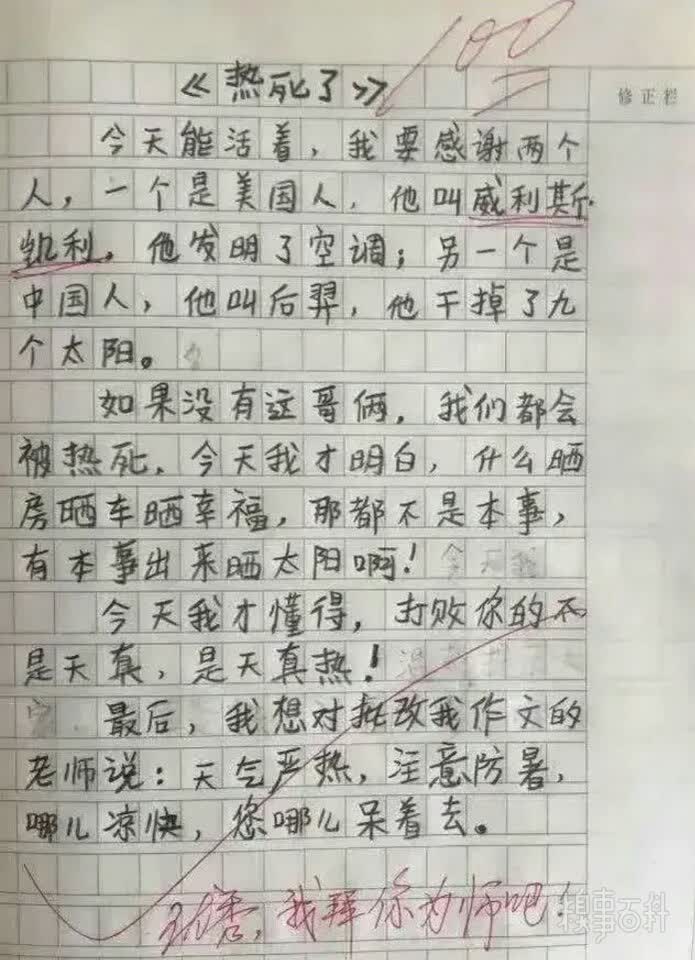 100
《热死了》
修正栏
今天能活着，我要感谢两个
人，一个是美国人，他叫威利斯·
凯利，他发明了空调；另一个是
中国人，他叫后羿，他干掉了九
个太阳。
如果没有这哥俩，我们都会
被热死，今天我才明白，什么晒
房晒车晒幸福，那都不是本事，
有本事出来晒太阳啊！
今天我才懂得，打败你的不
是天真，是天真热！
最后，我想对批改我作文的
老师说：天气严热，注意防暑，
哪儿凉快，您哪儿呆着去。
优秀，我拜你为师吧！
糗事百科